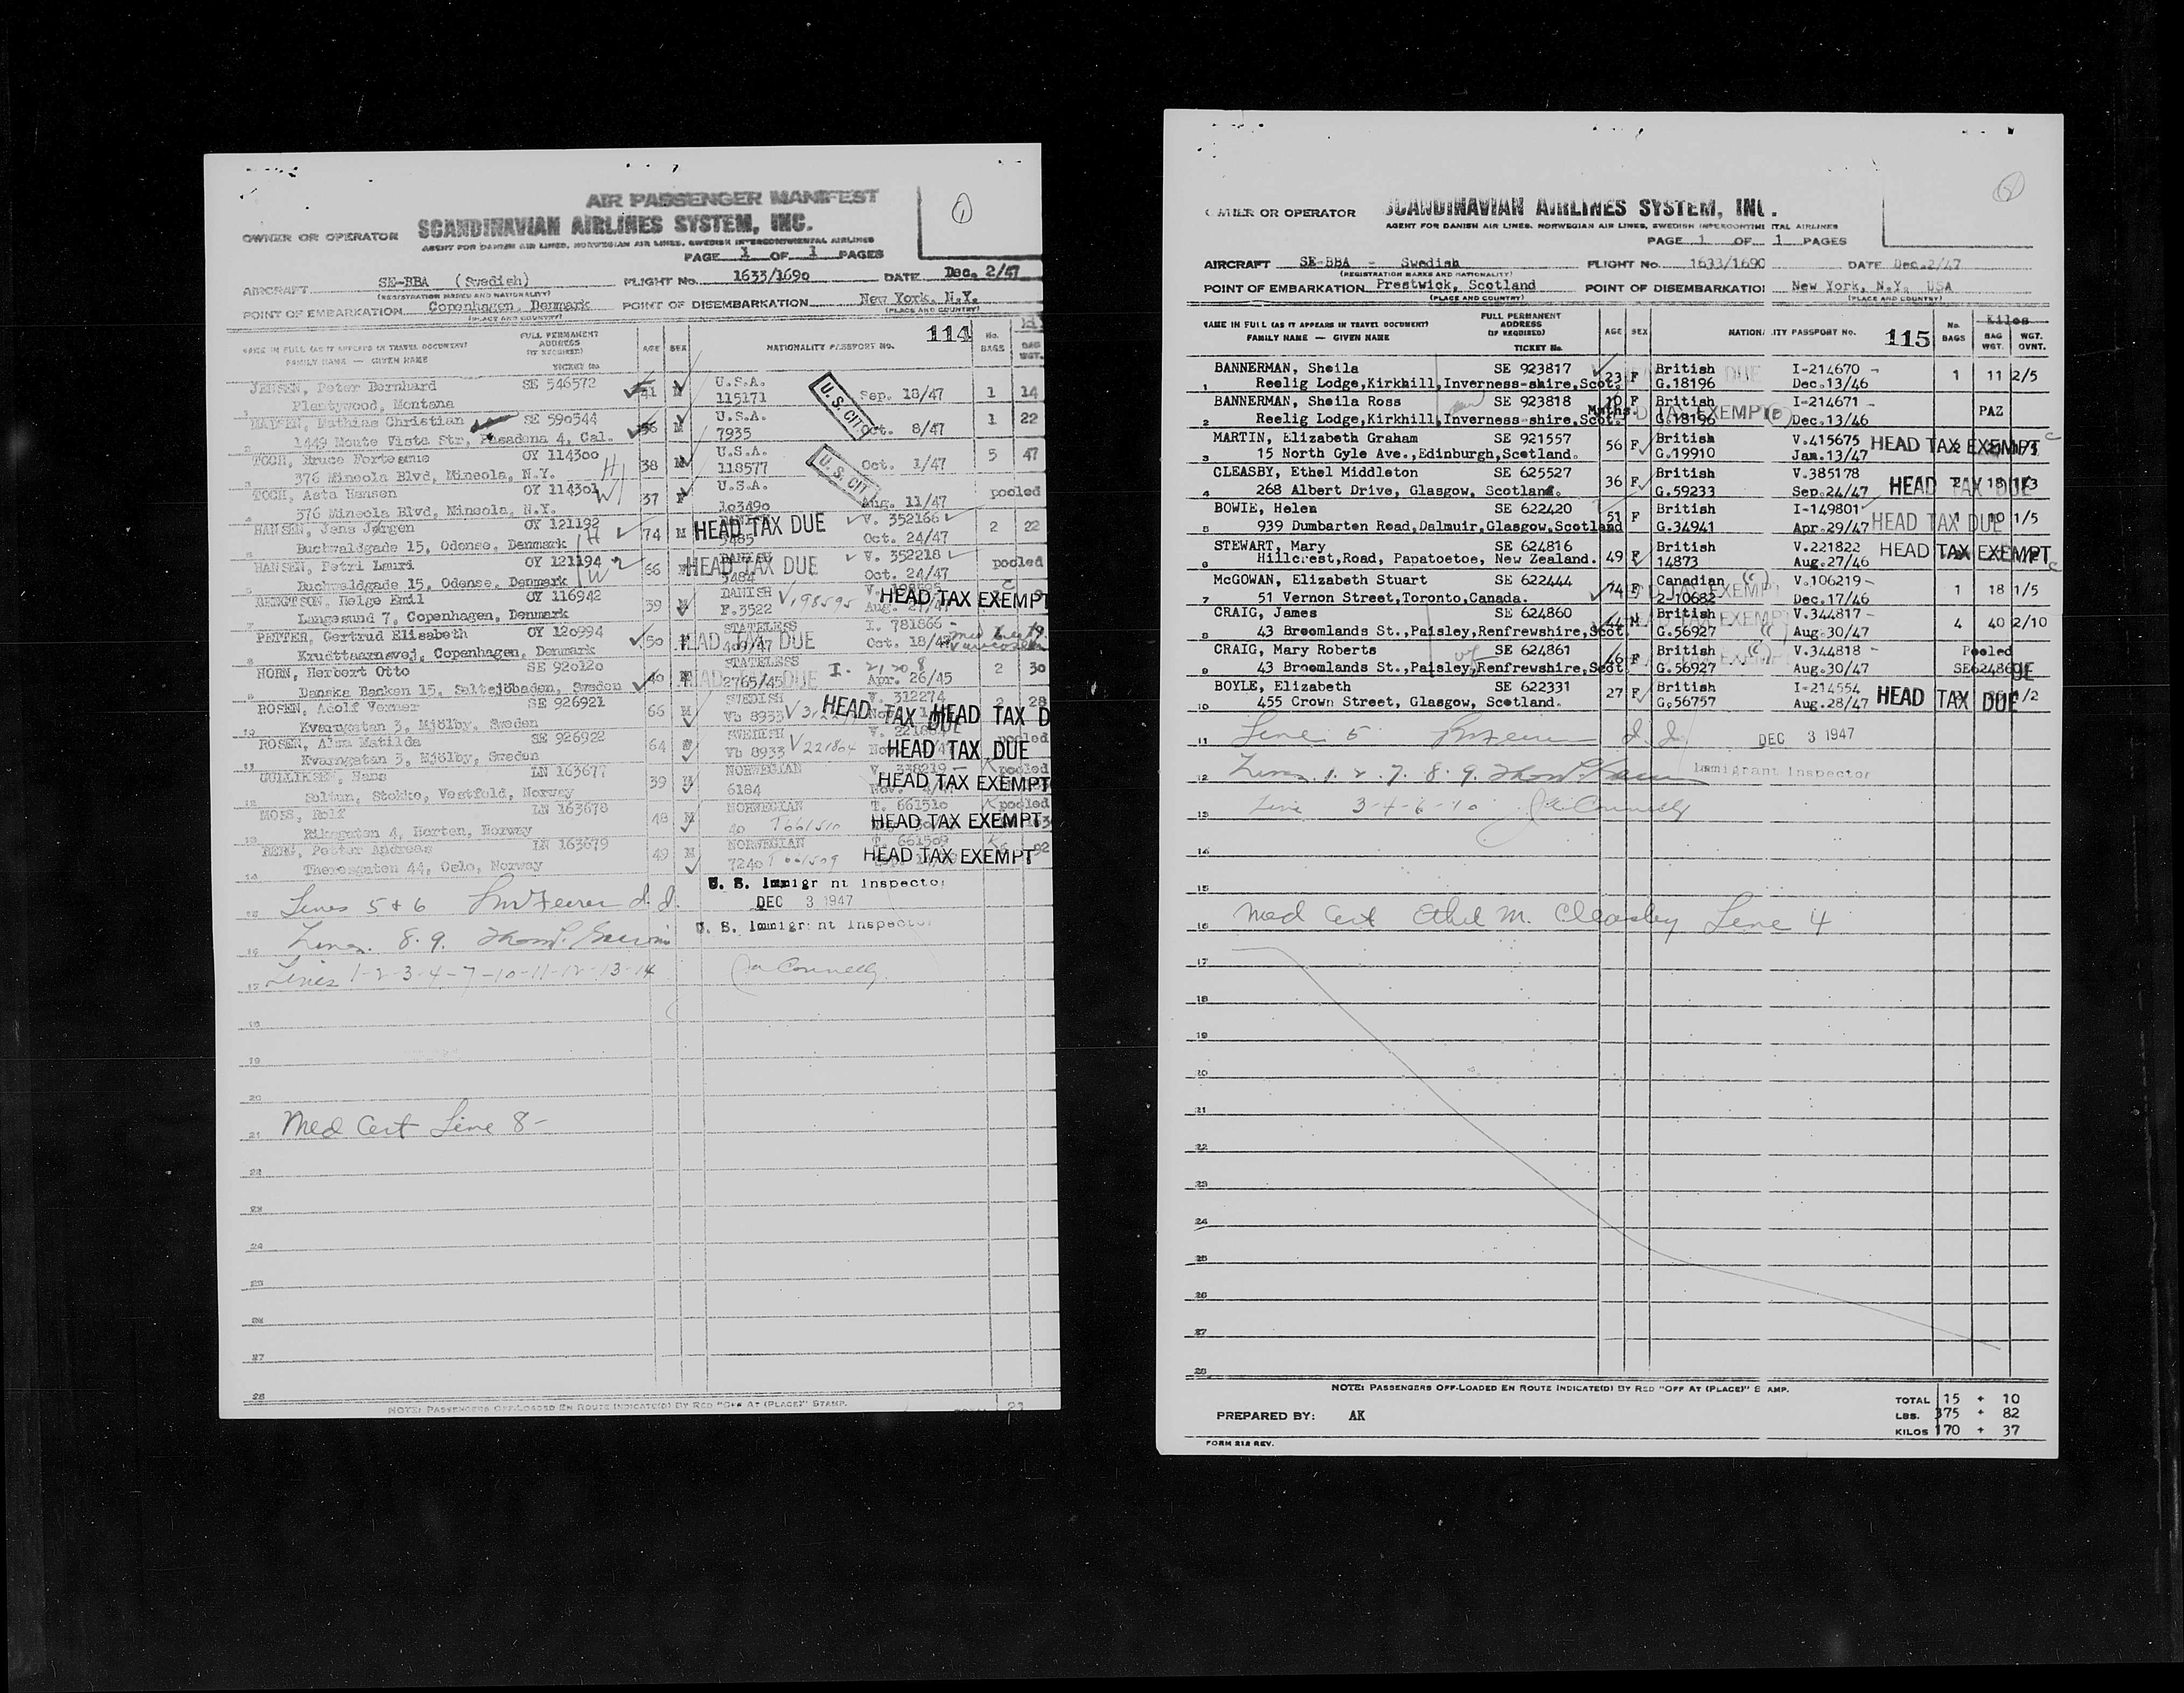 AIR PASSENGER MANIFEST
1
OWNER OR OPERATOR SCANDINAVIAN AIRLINES SYSTEM, INC.
AGENT FOR DANISH AIR LINES, NORWEGIAN AIR LINES, SWEDISH INTERCONTINENTAL AIRLINES
PAGE 1 OF 1 PAGES
AIRCRAFT SE-BBA (Swedish) FLIGHT No. 1633/1690 DATE Dec. 2/47
(REGISTRATION MARKS AND NATIONALITY)
POINT OF EMBARKATION Copenhagen, Denmark POINT OF DISEMBARKATION New York, N.Y.
(PLACE AND COUNTRY) (PLACE AND COUNTRY)
NAME IN FULL (AS IT APPEARS IN TRAVEL DOCUMENT) FULL PERMANENT ADDRESS (IF REQUIRED) AGE SEX NATIONALITY PASSPORT No. 114 No. BAGS BAG WGT.
FAMILY NAME — GIVEN NAME TICKET No.
JENSEN, Peter Bernhard SE 546572 41 M U.S.A. U. S. CIT. 1 14
1 Plentywood, Montana 115171 Sep. 18/47
MADSEN, Mathias Christian SE 590544 56 M U.S.A. 1 22
2 1449 Monte Vista Str, Pasadena 4, Cal. 7935 Oct. 8/47
TOCH, Bruce Fortesque OY 114300 H 38 M U.S.A. U. S. CIT 5 47
3 376 Mineola Blvd, Mineola, N.Y. 118577 Oct. 1/47
TOCH, Asta Hansen OY 114301 W 37 F U.S.A. pooled
4 376 Mineola Blvd, Mineola, N.Y. 103490 Aug. 11/47
HANSEN, Jens Jørgen OY 121192 H 74 M DANISH HEAD TAX DUE V. 352166 2 22
5 Buchwaldgade 15, Odense, Denmark 5485 Oct. 24/47
HANSEN, Petri Lauri OY 121194 W 66 F DANISH HEAD TAX DUE V. 352218 pooled
6 Buchwaldgade 15, Odense, Denmark 5484 Oct. 24/47
BENGTSON, Helge Emil OY 116942 39 M DANISH V198595 HEAD TAX EXEMPT
7 Langesund 7, Copenhagen, Denmark F.3522 Aug. 27/47
PETTER, Gertrud Elisabeth OY 120994 50 F STATELESS HEAD TAX DUE I. 781866
8 Krudttaarnsvej, Copenhagen, Denmark 409/47 Oct. 18/47
HORN, Herbert Otto SE 920120 40 M STATELESS HEAD TAX DUE I. 21208 2 30
9 Danska Backen 15, Saltsjöbaden, Sweden 2765/45 Apr. 26/45
ROSEN, Adolf Verner SE 926921 66 M SWEDISH V. 312274 HEAD TAX DUE 2 28
10 Kvarngatan 3, Mjölby, Sweden Vb 8933
ROSEN, Alma Matilda SE 926922 64 F SWEDISH V221864 HEAD TAX DUE pooled
11 Kvarngatan 3, Mjölby, Sweden Vb 8933
GULLIKSEN, Hans LN 163677 39 M NORWEGIAN V. 338219 HEAD TAX EXEMPT pooled
12 Soltun, Stokke, Vestfold, Norway 6184
MOSS, Rolf LN 163678 48 M NORWEGIAN T. 661510 HEAD TAX EXEMPT pooled
13 Riksgaten 4, Horten, Norway 40 T661510
BERG, Petter Andreas LN 163679 49 M NORWEGIAN T. 661509 HEAD TAX EXEMPT 92
14 Theresgaten 44, Oslo, Norway 7240 T661509
U. S. Immigrant Inspector
15 Lines 5 + 6 DEC 3 1947
16 Lines. 8. 9. U. S. Immigrant Inspector
17 Lines 1-2-3-4-7-10-11-12-13-14 Connelly
18
19
20
21 Med Cert Line 8-
22
23
24
25
26
27
28
NOTE: PASSENGERS OFF-LOADED EN ROUTE INDICATE(D) BY RED "OFF AT (PLACE)" STAMP. 23
OWNER OR OPERATOR SCANDINAVIAN AIRLINES SYSTEM, INC.
AGENT FOR DANISH AIR LINES, NORWEGIAN AIR LINES, SWEDISH INTERCONTINENTAL AIRLINES
PAGE 1 OF 1 PAGES
AIRCRAFT SE-BBA - Swedish FLIGHT No. 1633/1690 DATE Dec.2/47
(REGISTRATION MARKS AND NATIONALITY)
POINT OF EMBARKATION Prestwick, Scotland POINT OF DISEMBARKATION New York, N.Y. USA
(PLACE AND COUNTRY) (PLACE AND COUNTRY)
NAME IN FULL (AS IT APPEARS IN TRAVEL DOCUMENT) FULL PERMANENT ADDRESS (IF REQUIRED) AGE SEX NATIONALITY PASSPORT No. 115 No. BAGS Kilos BAG WGT. WGT. OVNT.
FAMILY NAME — GIVEN NAME TICKET No.
BANNERMAN, Sheila SE 923817 23 F British I-214670 1 11 2/5
1 Reelig Lodge,Kirkhill,Inverness-shire,Scot. G.18196 Dec.13/46
BANNERMAN, Sheila Ross SE 923818 10 Mnths. F British I-214671 PAZ
2 Reelig Lodge,Kirkhill,Inverness-shire,Scot. G.18196 TAX EXEMPT Dec.13/46
MARTIN, Elizabeth Graham SE 921557 56 F British V.415675 HEAD TAX EXEMPT
3 15 North Gyle Ave.,Edinburgh,Scotland. G.19910 Jan.13/47
CLEASBY, Ethel Middleton SE 625527 36 F British V.385178 HEAD TAX DUE
4 268 Albert Drive, Glasgow, Scotland. G.59233 Sep.24/47
BOWIE, Helen SE 622420 51 F British I-149801 HEAD TAX DUE 1/5
5 939 Dumbarten Road,Dalmuir,Glasgow,Scotland G.34941 Apr.29/47
STEWART, Mary SE 624816 49 F British V.221822 HEAD TAX EXEMPT
6 Hillcrest,Road, Papatoetoe, New Zealand. 14873 Aug.27/46
McGOWAN, Elizabeth Stuart SE 622444 74 F Canadian V.106219 1 18 1/5
7 51 Vernon Street,Toronto,Canada. 2-10682 Dec.17/46
CRAIG, James SE 624860 44 M British V.344817 4 40 2/10
8 43 Broomlands St.,Paisley,Renfrewshire,Scot. G.56927 Aug.30/47
CRAIG, Mary Roberts SE 624861 46 F British V.344818 Pooled
9 43 Broomlands St.,Paisley,Renfrewshire,Scot. G.56927 Aug.30/47 SE624860
BOYLE, Elizabeth SE 622331 27 F British I-214554 HEAD TAX DUE
10 455 Crown Street, Glasgow, Scotland. G.56757 Aug.28/47
11 Line 5 DEC 3 1947
12 Lines. 1. 2. 7. 8. 9. Immigrant Inspector
13 Line 3-4-6-10 Connelly
14
15
16 Med Cert Ethel M. Cleasby Line 4
17
18
19
20
21
22
23
24
25
26
27
28
NOTE: PASSENGERS OFF-LOADED EN ROUTE INDICATE(D) BY RED "OFF AT (PLACE)" STAMP.
TOTAL 15 + 10
PREPARED BY: AK LBS. 375 + 82
KILOS 170 + 37
FORM 212 REV.